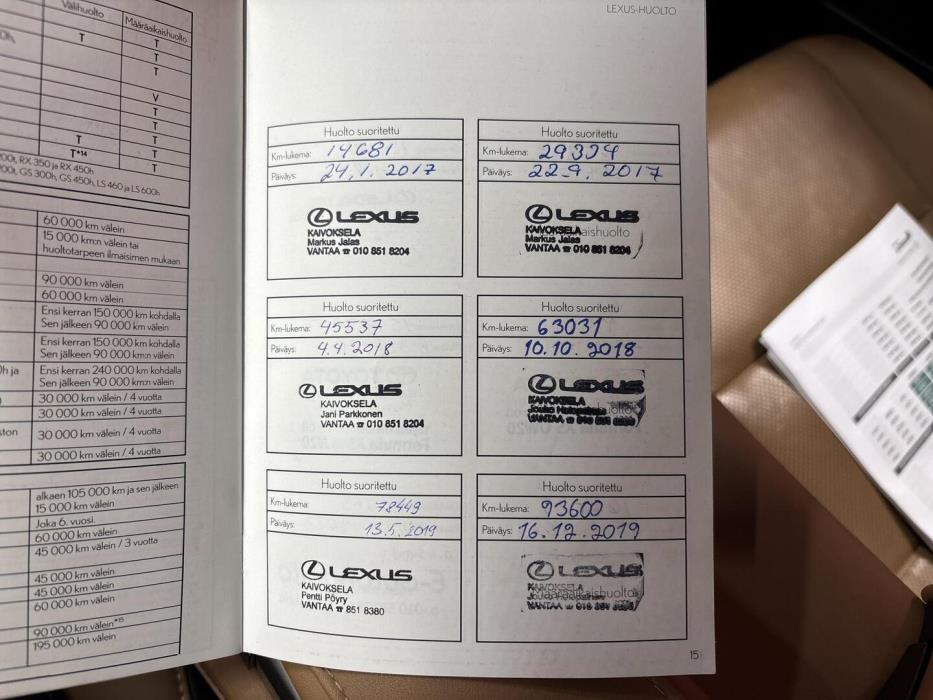 Välihuolto
Määräaikaishuolto
T
T
T
T
V
T
T
T
T
T
T*14
T
200t, RX 350 ja RX 450h
200t, GS 300h, GS 450h, LS 460 ja LS 600h
60 000 km välein
15 000 km:n välein tai
huoltotarpeen ilmaisimen mukaan
90 000 km välein
60 000 km välein
Ensi kerran 150 000 km kohdalla
Sen jälkeen 90 000 km välein
Ensi kerran 150 000 km kohdalla
Sen jälkeen 90 000 km:n välein
Ensi kerran 240 000 km kohdalla
Sen jälkeen 90 000 km:n välein
30 000 km välein / 4 vuotta
30 000 km välein / 4 vuotta
30 000 km välein / 4 vuotta
30 000 km välein / 4 vuotta
alkaen 105 000 km ja sen jälkeen
15 000 km välein
Joka 6. vuosi.
60 000 km välein
45 000 km välein / 3 vuotta
45 000 km välein
45 000 km välein
60 000 km välein
90 000 km välein*15
195 000 km välein
LEXUS-HUOLTO
Huolto suoritettu
Km-lukema: 14681
Päiväys: 24.1.2017
LEXUS
KAIVOKSELA
Markus Jalas
VANTAA ☎ 010 851 8204
Huolto suoritettu
Km-lukema: 29324
Päiväys: 22.9.2017
LEXUS
KAIVOKSELA
Markus Jalas
VANTAA ☎ 010 851 8204
Huolto suoritettu
Km-lukema: 45537
Päiväys: 4.4.2018
LEXUS
KAIVOKSELA
Jani Parkkonen
VANTAA ☎ 010 851 8204
Huolto suoritettu
Km-lukema: 63031
Päiväys: 10.10.2018
LEXUS
KAIVOKSELA
Jouko
VANTAA ☎ 010 851
Huolto suoritettu
Km-lukema: 78449
Päiväys: 13.5.2019
LEXUS
KAIVOKSELA
Pentti Pöyry
VANTAA ☎ 851 8380
Huolto suoritettu
Km-lukema: 93600
Päiväys: 16.12.2019
LEXUS
KAIVOKSELA
Määräaikaishuolto
VANTAA ☎ 010 851
15